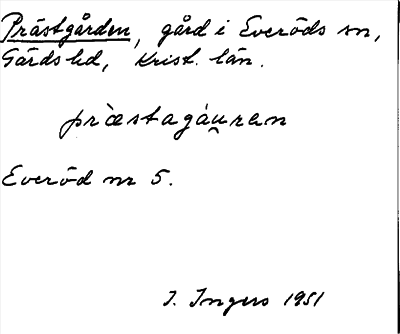 Prästgården, gård i Everöds sn,
Gärds hd, Krist. län.
prӕ̀stagáu̯ren
Everöd nr 5.
I. Ingers 1951